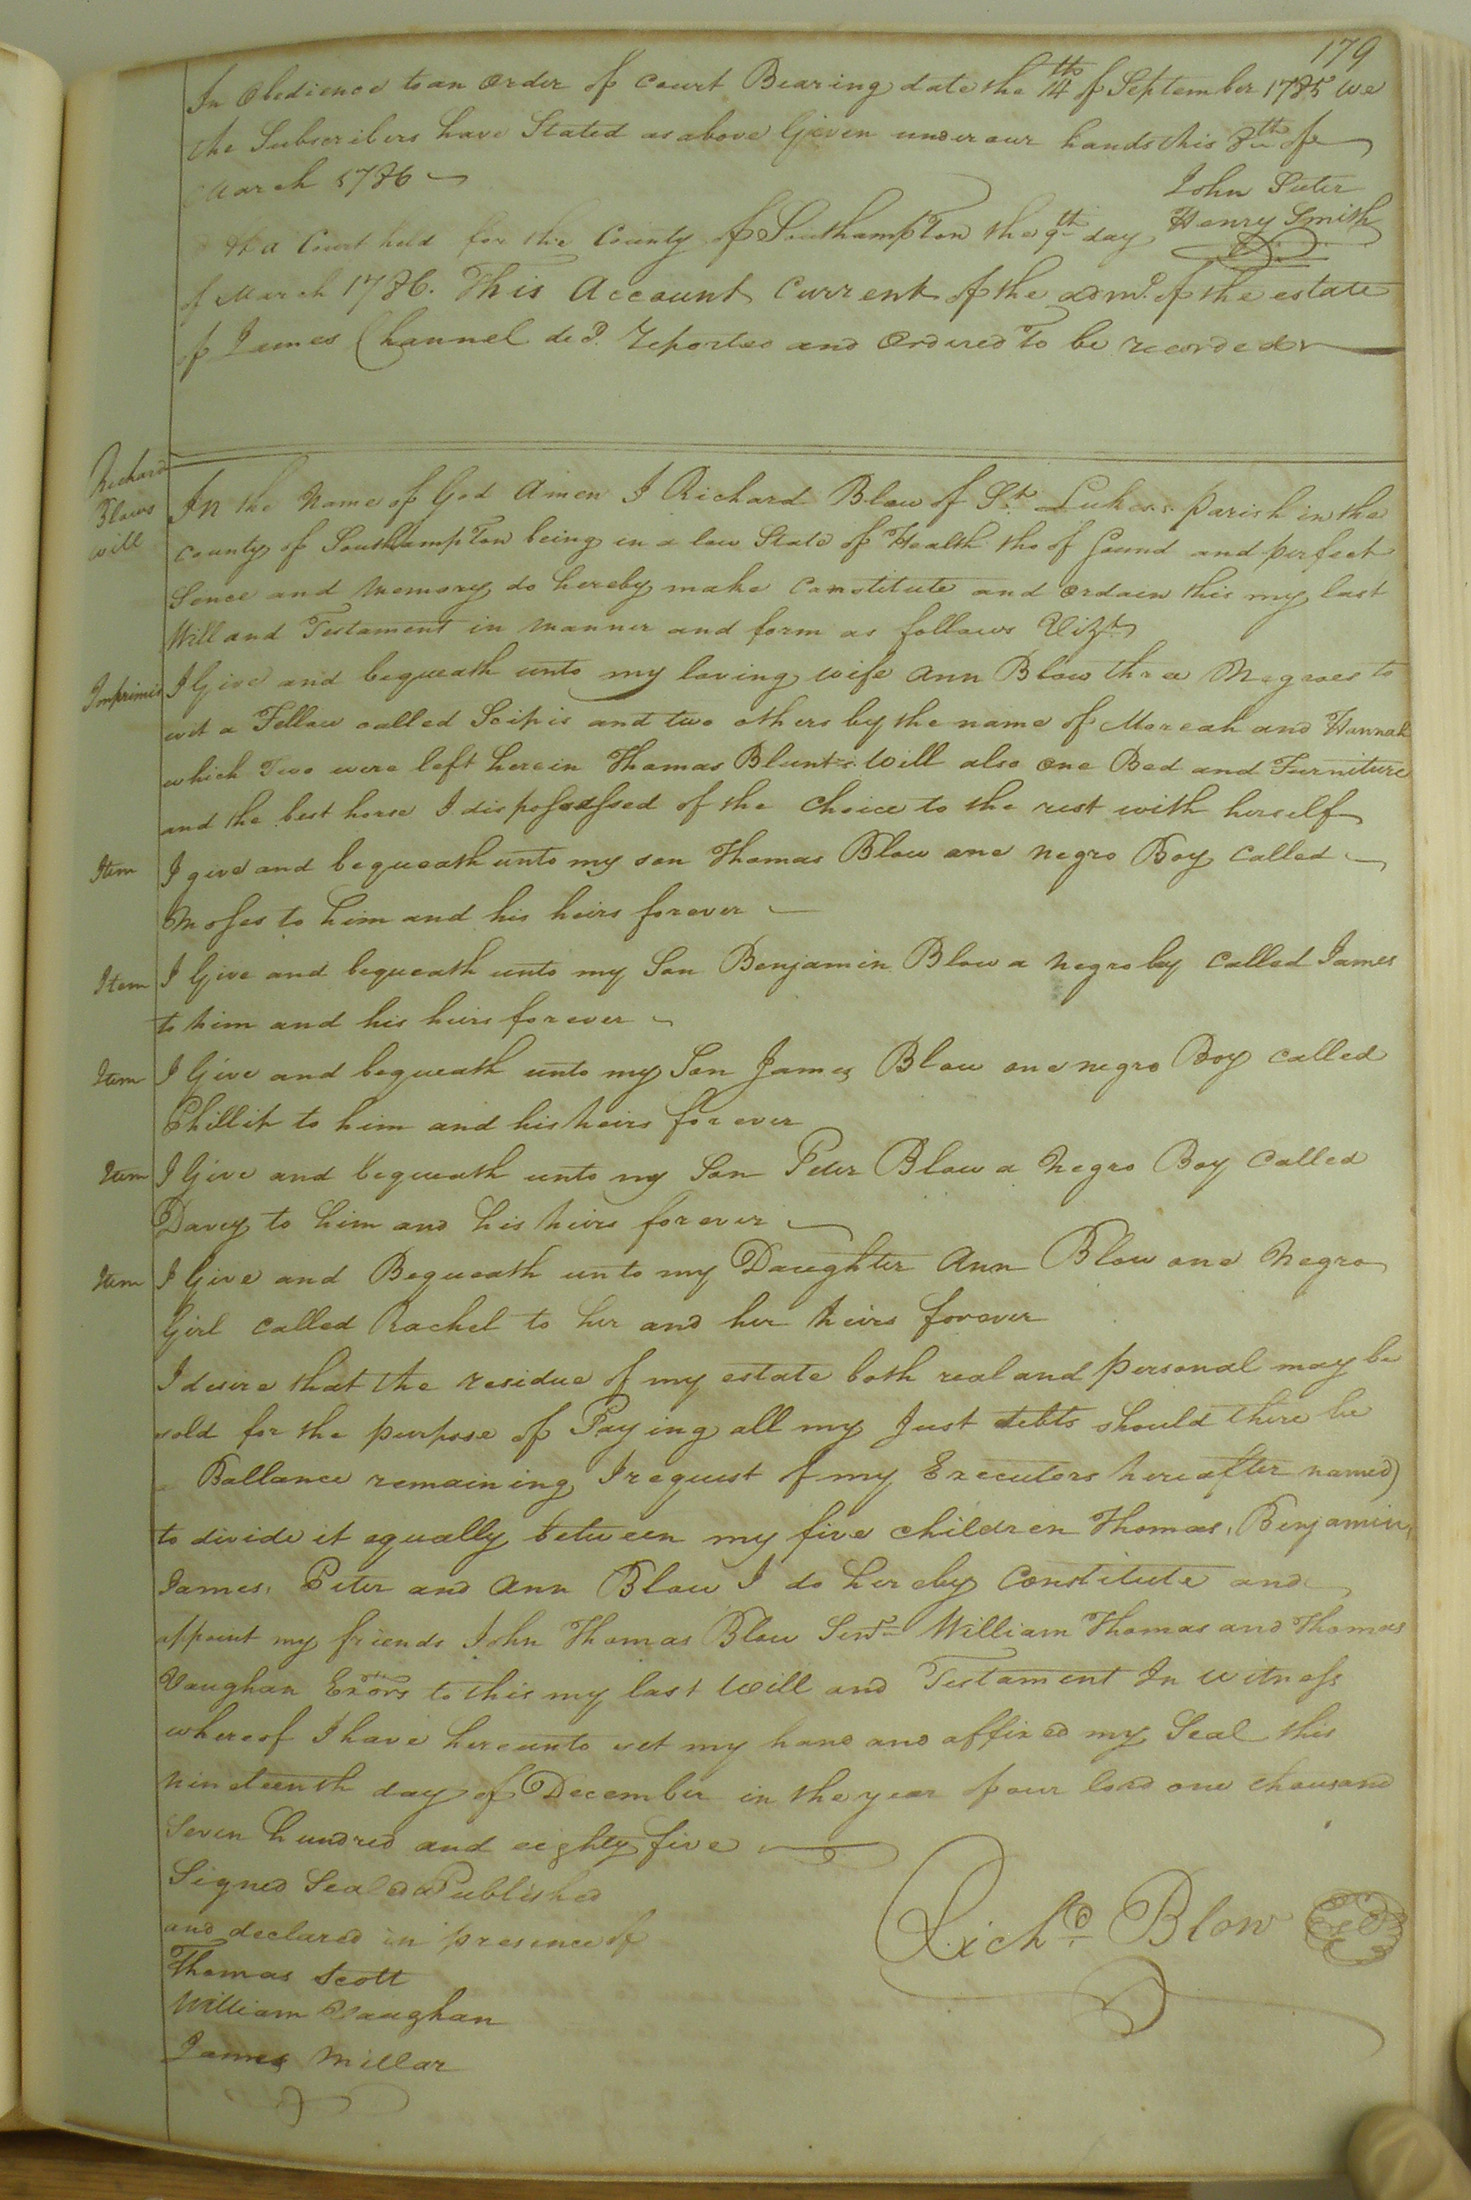 179
In Obedience to an Order of Court Bearing date the 14th of September 1785 we
the Subscribers have Stated as above Given under our hands this 8th of
March 1786
John Suter
Henry Smith
At a Court held for the County of Southampton the 9th day
of March 1786. This Account Current of the admr. of the estate
of James Channel decd. reported and Ordered To be recorded
Richard
Blows
will
In the Name of God Amen I Richard Blow of St. Lukes parish in the
County of Southampton being in a low State of Health tho of Sound and perfect
Sence and Memory do hereby make Constitute and Ordain this my last
Will and Testament in manner and form as follows Vizt
Imprimis I Give and bequeath unto my loving wife Ann Blow three Negroes to
wit a Fellow called Scipio and two others by the name of Moreah and Hannah
which Two were left her in Thomas Blunts Will also One Bed and Furniture
and the best horse I dispossessed of the Choice to the rest with herself
Item I give and bequeath unto my son Thomas Blow one negro Boy Called
Moses to him and his heirs forever
Item I Give and bequeath unto my Son Benjamin Blow a negro boy Called James
to him and his heirs forever
Item I Give and bequeath unto my Son James Blow one negro Boy Called
Phillip to him and his heirs forever
Item I Give and bequeath unto my Son Peter Blow a Negro Boy Called
Davey to him and his heirs forever
Item I Give and Bequeath unto my Daughter Ann Blow one Negro
Girl Called Rachel to her and her heirs forever
I desire that the residue of my estate both real and personal may be
sold for the purpose of Paying all my Just debts should there be
a Ballance remaining I request of my Executors hereafter named)
to divide it equally between my five children Thomas, Benjamin,
James, Peter and Ann Blow I do hereby Constitute and
appoint my friends John Thomas Blow Senr. William Thomas and Thomas
Vaughan Exors to this my last Will and Testament In witness
whereof I have hereunto set my hand and affixed my Seal this
nineteenth day of December in the year of our lord one thousand
Seven hundred and eighty five
Signed Sealed & Published
and declared in presence of
Thomas Scott
William Vaughan
James Millar
Richd. Blow